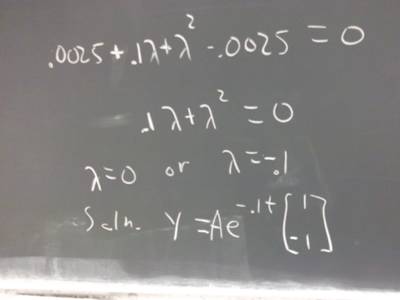 .0025+.1λ+λ² -.0025 = 0
.1λ+λ² = 0
λ=0 or λ=-.1
Soln. Y =Ae^{-.1t} [1 -1]